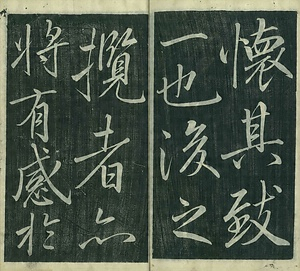 懷其致
一也後之
攬者亦
將有感於